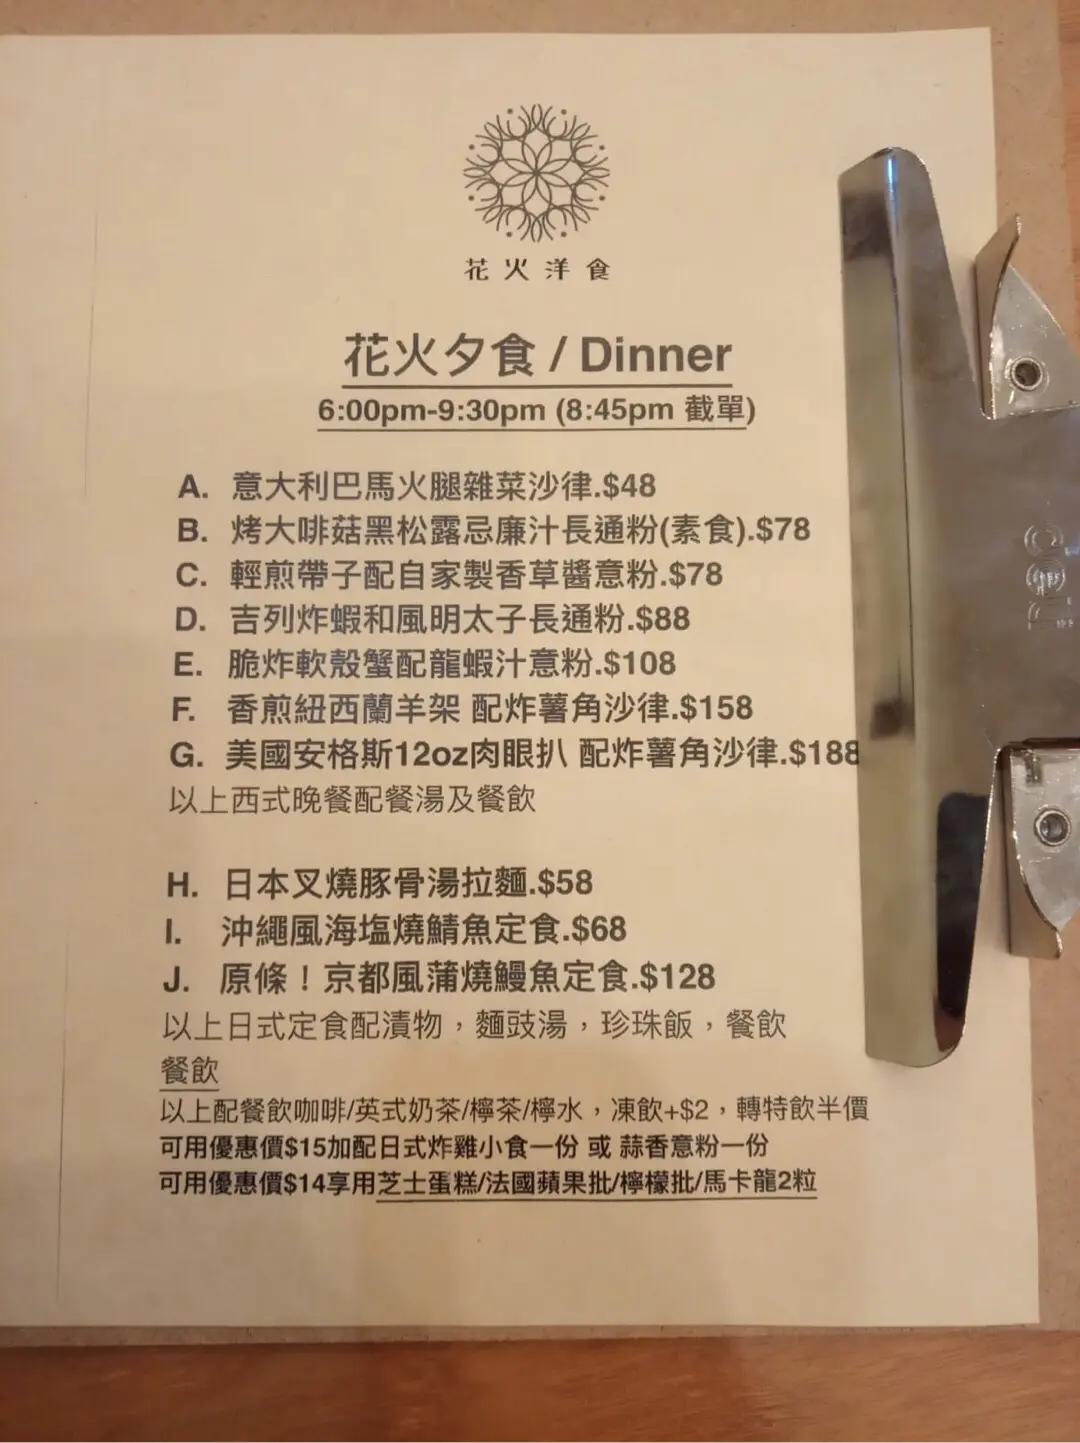 花火洋食
花火夕食 / Dinner
6:00pm-9:30pm (8:45pm 截單)
A. 意大利巴馬火腿雜菜沙律.$48
B. 烤大啡菇黑松露忌廉汁長通粉(素食).$78
C. 輕煎帶子配自家製香草醬意粉.$78
D. 吉列炸蝦和風明太子長通粉.$88
E. 脆炸軟殼蟹配龍蝦汁意粉.$108
F. 香煎紐西蘭羊架 配炸薯角沙律.$158
G. 美國安格斯12oz肉眼扒 配炸薯角沙律.$188
以上西式晚餐配餐湯及餐飲
H. 日本叉燒豚骨湯拉麵.$58
I. 沖繩風海塩燒鯖魚定食.$68
J. 原條！京都風蒲燒鰻魚定食.$128
以上日式定食配漬物，麵豉湯，珍珠飯，餐飲
餐飲
以上配餐飲咖啡/英式奶茶/檸茶/檸水，凍飲+$2，轉特飲半價
可用優惠價$15加配日式炸雞小食一份 或 蒜香意粉一份
可用優惠價$14享用芝士蛋糕/法國蘋果批/檸檬批/馬卡龍2粒